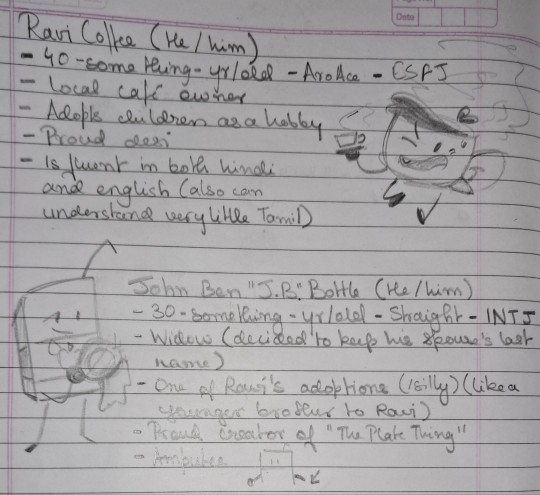 Date
Ravi Coffee (He/him)
- 40-something-yr/old - AroAce - ESFJ
- Local café owner
- Adopts children as a hobby
- Proud desi
- Is fluent in both hindi
and english (also can
understand very little Tamil)
John Ben "J.B." Bottle (He/him)
- 30-something-yr/old - Straight - INTJ
- Widow (decided to keep his spouse's last
name)
- One of Ravi's adoptions (/silly) (like a
younger brother to Ravi)
- Proud creator of "The Plate Thing"
- Amputee